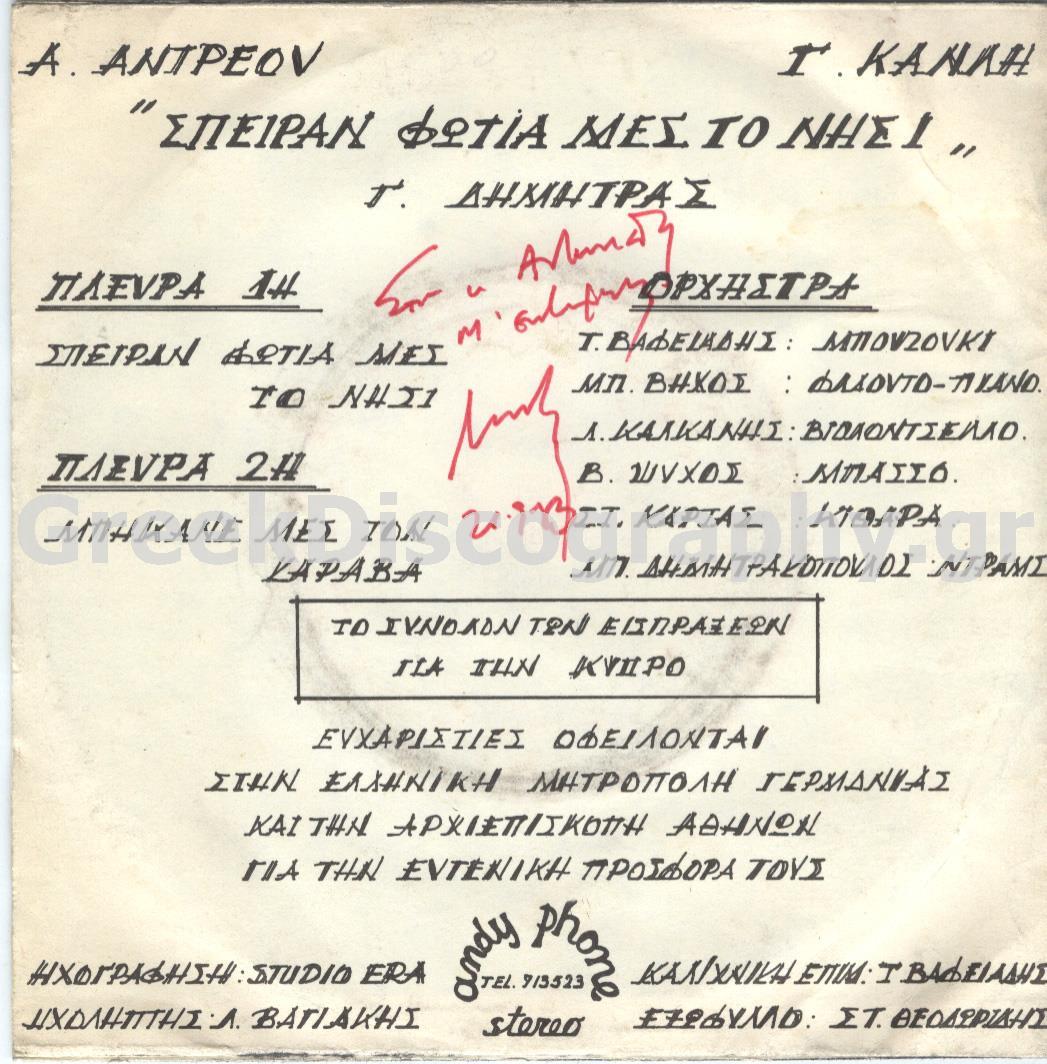 Α. ΑΝΤΡΕΟΥ Γ. ΚΑΝΛΗ
"ΣΠΕΙΡΑΝ ΦΩΤΙΑ ΜΕΣ ΤΟ ΝΗΣΙ"
Γ. ΔΗΜΗΤΡΑΣ
ΠΛΕΥΡΑ 1Η
ΣΠΕΙΡΑΝ ΦΩΤΙΑ ΜΕΣ
ΤΟ ΝΗΣΙ
ΠΛΕΥΡΑ 2Η
ΜΠΗΚΑΝΕ ΜΕΣ ΤΟΝ
ΚΑΡΑΒΑ
ΟΡΧΗΣΤΡΑ
Τ. ΒΑΦΕΙΑΔΗΣ: ΜΠΟΥΖΟΥΚΙ
ΜΠ. ΒΗΧΟΣ : ΦΛΑΟΥΤΟ-ΠΙΑΝΟ.
Λ. ΚΑΛΚΑΝΗΣ: ΒΙΟΛΟΝΤΣΕΛΛΟ.
Β. ΨΥΧΟΣ : ΜΠΑΣΣΟ.
ΣΤ. ΚΑΡΤΑΣ : ΚΙΘΑΡΑ.
ΜΠ. ΔΗΜΗΤΡΑΚΟΠΟΥΛΟΣ: ΝΤΡΑΜΣ
GreekDiscography.gr
ΤΟ ΣΥΝΟΛΟΝ ΤΩΝ ΕΙΣΠΡΑΞΕΩΝ
ΓΙΑ ΤΗΝ ΚΥΠΡΟ
ΕΥΧΑΡΙΣΤΙΕΣ ΟΦΕΙΛΟΝΤΑΙ
ΣΤΗΝ ΕΛΛΗΝΙΚΗ ΜΗΤΡΟΠΟΛΗ ΓΕΡΜΑΝΙΑΣ
ΚΑΙ ΤΗΝ ΑΡΧΙΕΠΙΣΚΟΠΗ ΑΘΗΝΩΝ
ΓΙΑ ΤΗΝ ΕΥΓΕΝΙΚΗ ΠΡΟΣΦΟΡΑ ΤΟΥΣ
andy phone
TEL. 713523
stereo
ΗΧΟΓΡΑΦΗΣΗ: STUDIO ERA
ΗΧΟΛΗΠΤΗΣ: Λ. ΒΑΓΙΑΚΗΣ
ΚΑΛ/ΧΝΙΚΗ ΕΠΙΜ: Τ. ΒΑΦΕΙΑΔΗΣ
ΕΞΩΦΥΛΛΟ: ΣΤ. ΘΕΟΔΩΡΙΔΗΣ